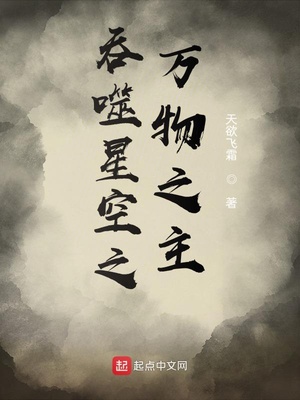 吞噬星空之
万物之主
天欲飞霜 ◎ 著
起 起点中文网